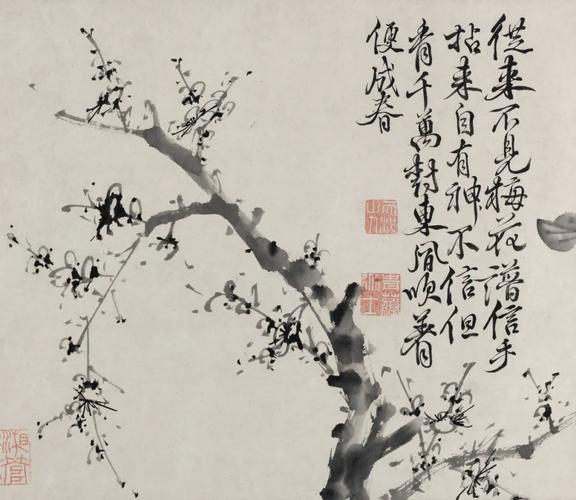 從来不見梅花譜信手
拈来自有神不信但
看千萬樹東風吹着
便成春